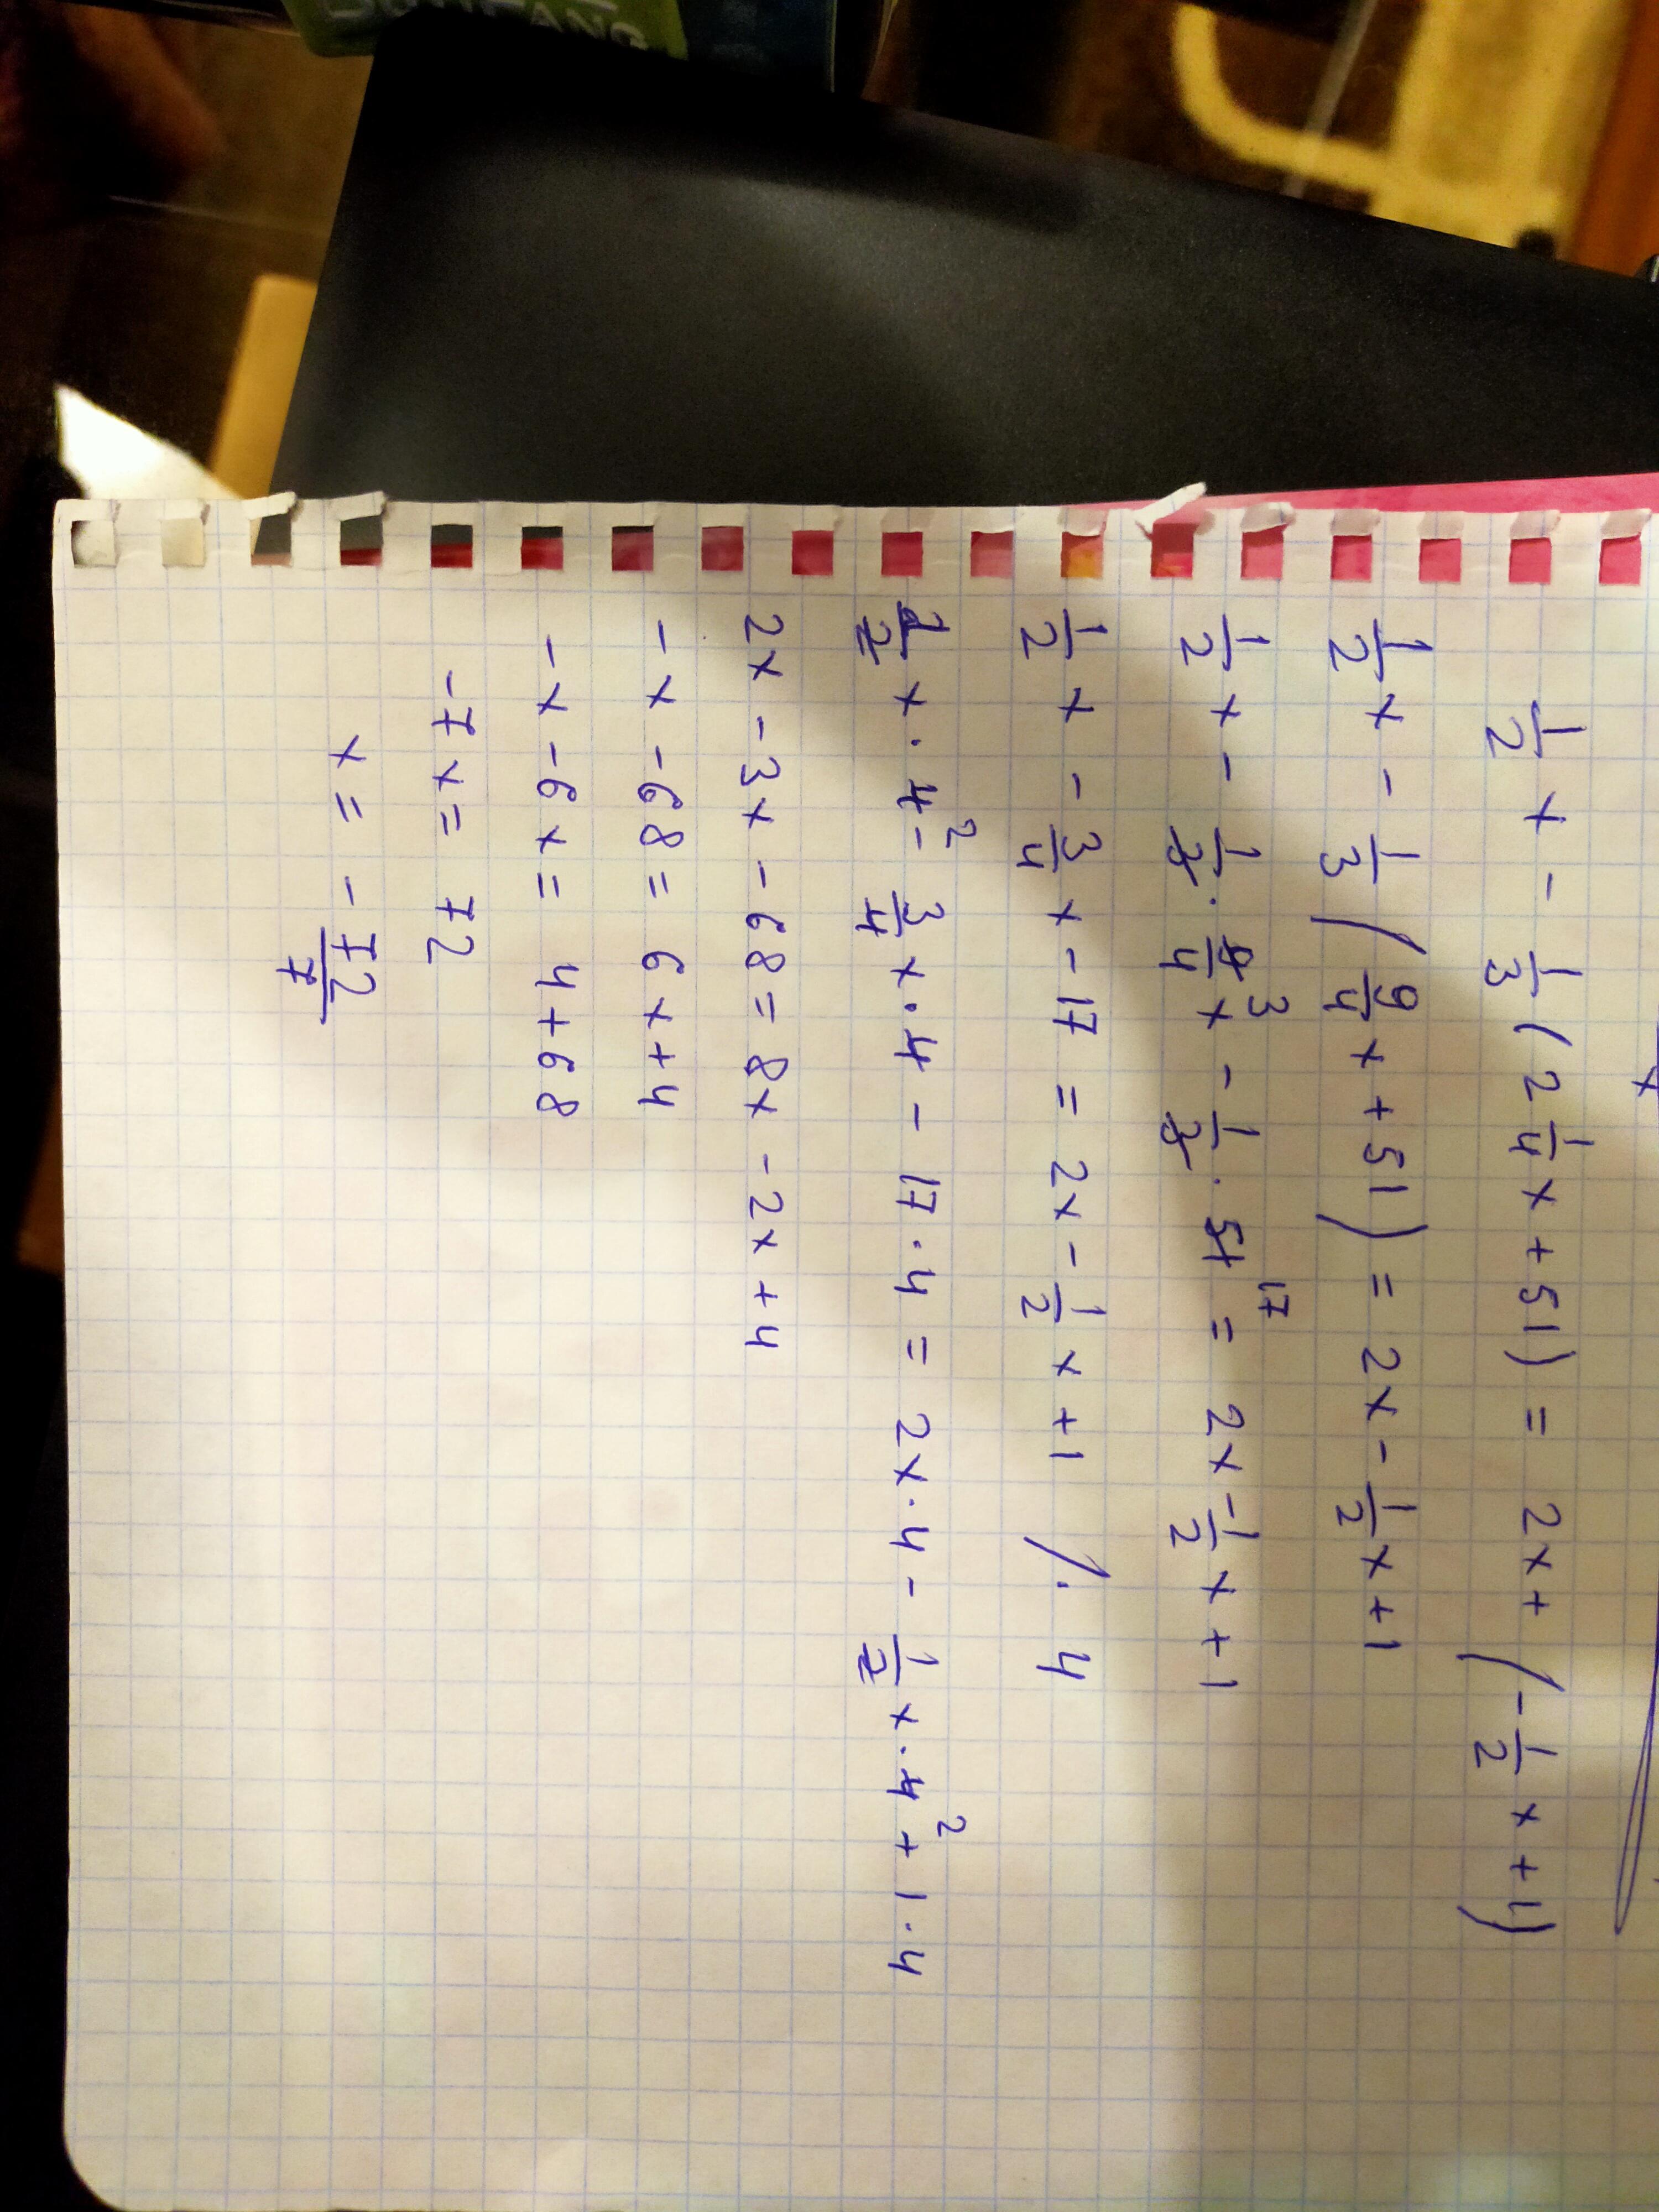 1/2 x - 1/3 (2 1/4 x + 51) = 2x + (-1/2 x + 1)
1/2 x - 1/3 (9/4 x + 51) = 2x - 1/2 x + 1
1/2 x - 1/3 · 9/4 3 x - 1/3 · 51 17 = 2x - 1/2 x + 1
1/2 x - 3/4 x - 17 = 2x - 1/2 x + 1 /· 4
1/2 x · 4 2 - 3/4 x · 4 - 17 · 4 = 2x · 4 - 1/2 x · 4 2 + 1 · 4
2x - 3x - 68 = 8x - 2x + 4
-x - 68 = 6x + 4
-x - 6x = 4 + 68
-7x = 72
x = - 72/7